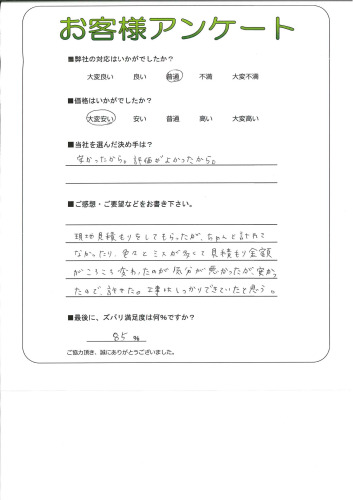 お客様アンケート
■弊社の対応はいかがでしたか?
大変良い 良い 普通 不満 大変不満
■価格はいかがでしたか?
大変安い 安い 普通 高い 大変高い
■当社を選んだ決め手は?
安かったから。評価がよかったから。
■ご感想・ご要望などをお書き下さい。
現地見積もりをしてもらったが、ちゃんと計れて
なかったり、色々とミスが多くて見積もり金額
がころころ変わったのが気分が悪かったが、安かっ
たので、許せた。工事はしっかりできていたと思う。
■最後に、ズバリ満足度は何%ですか?
85 %
ご協力頂き、誠にありがとうございました。